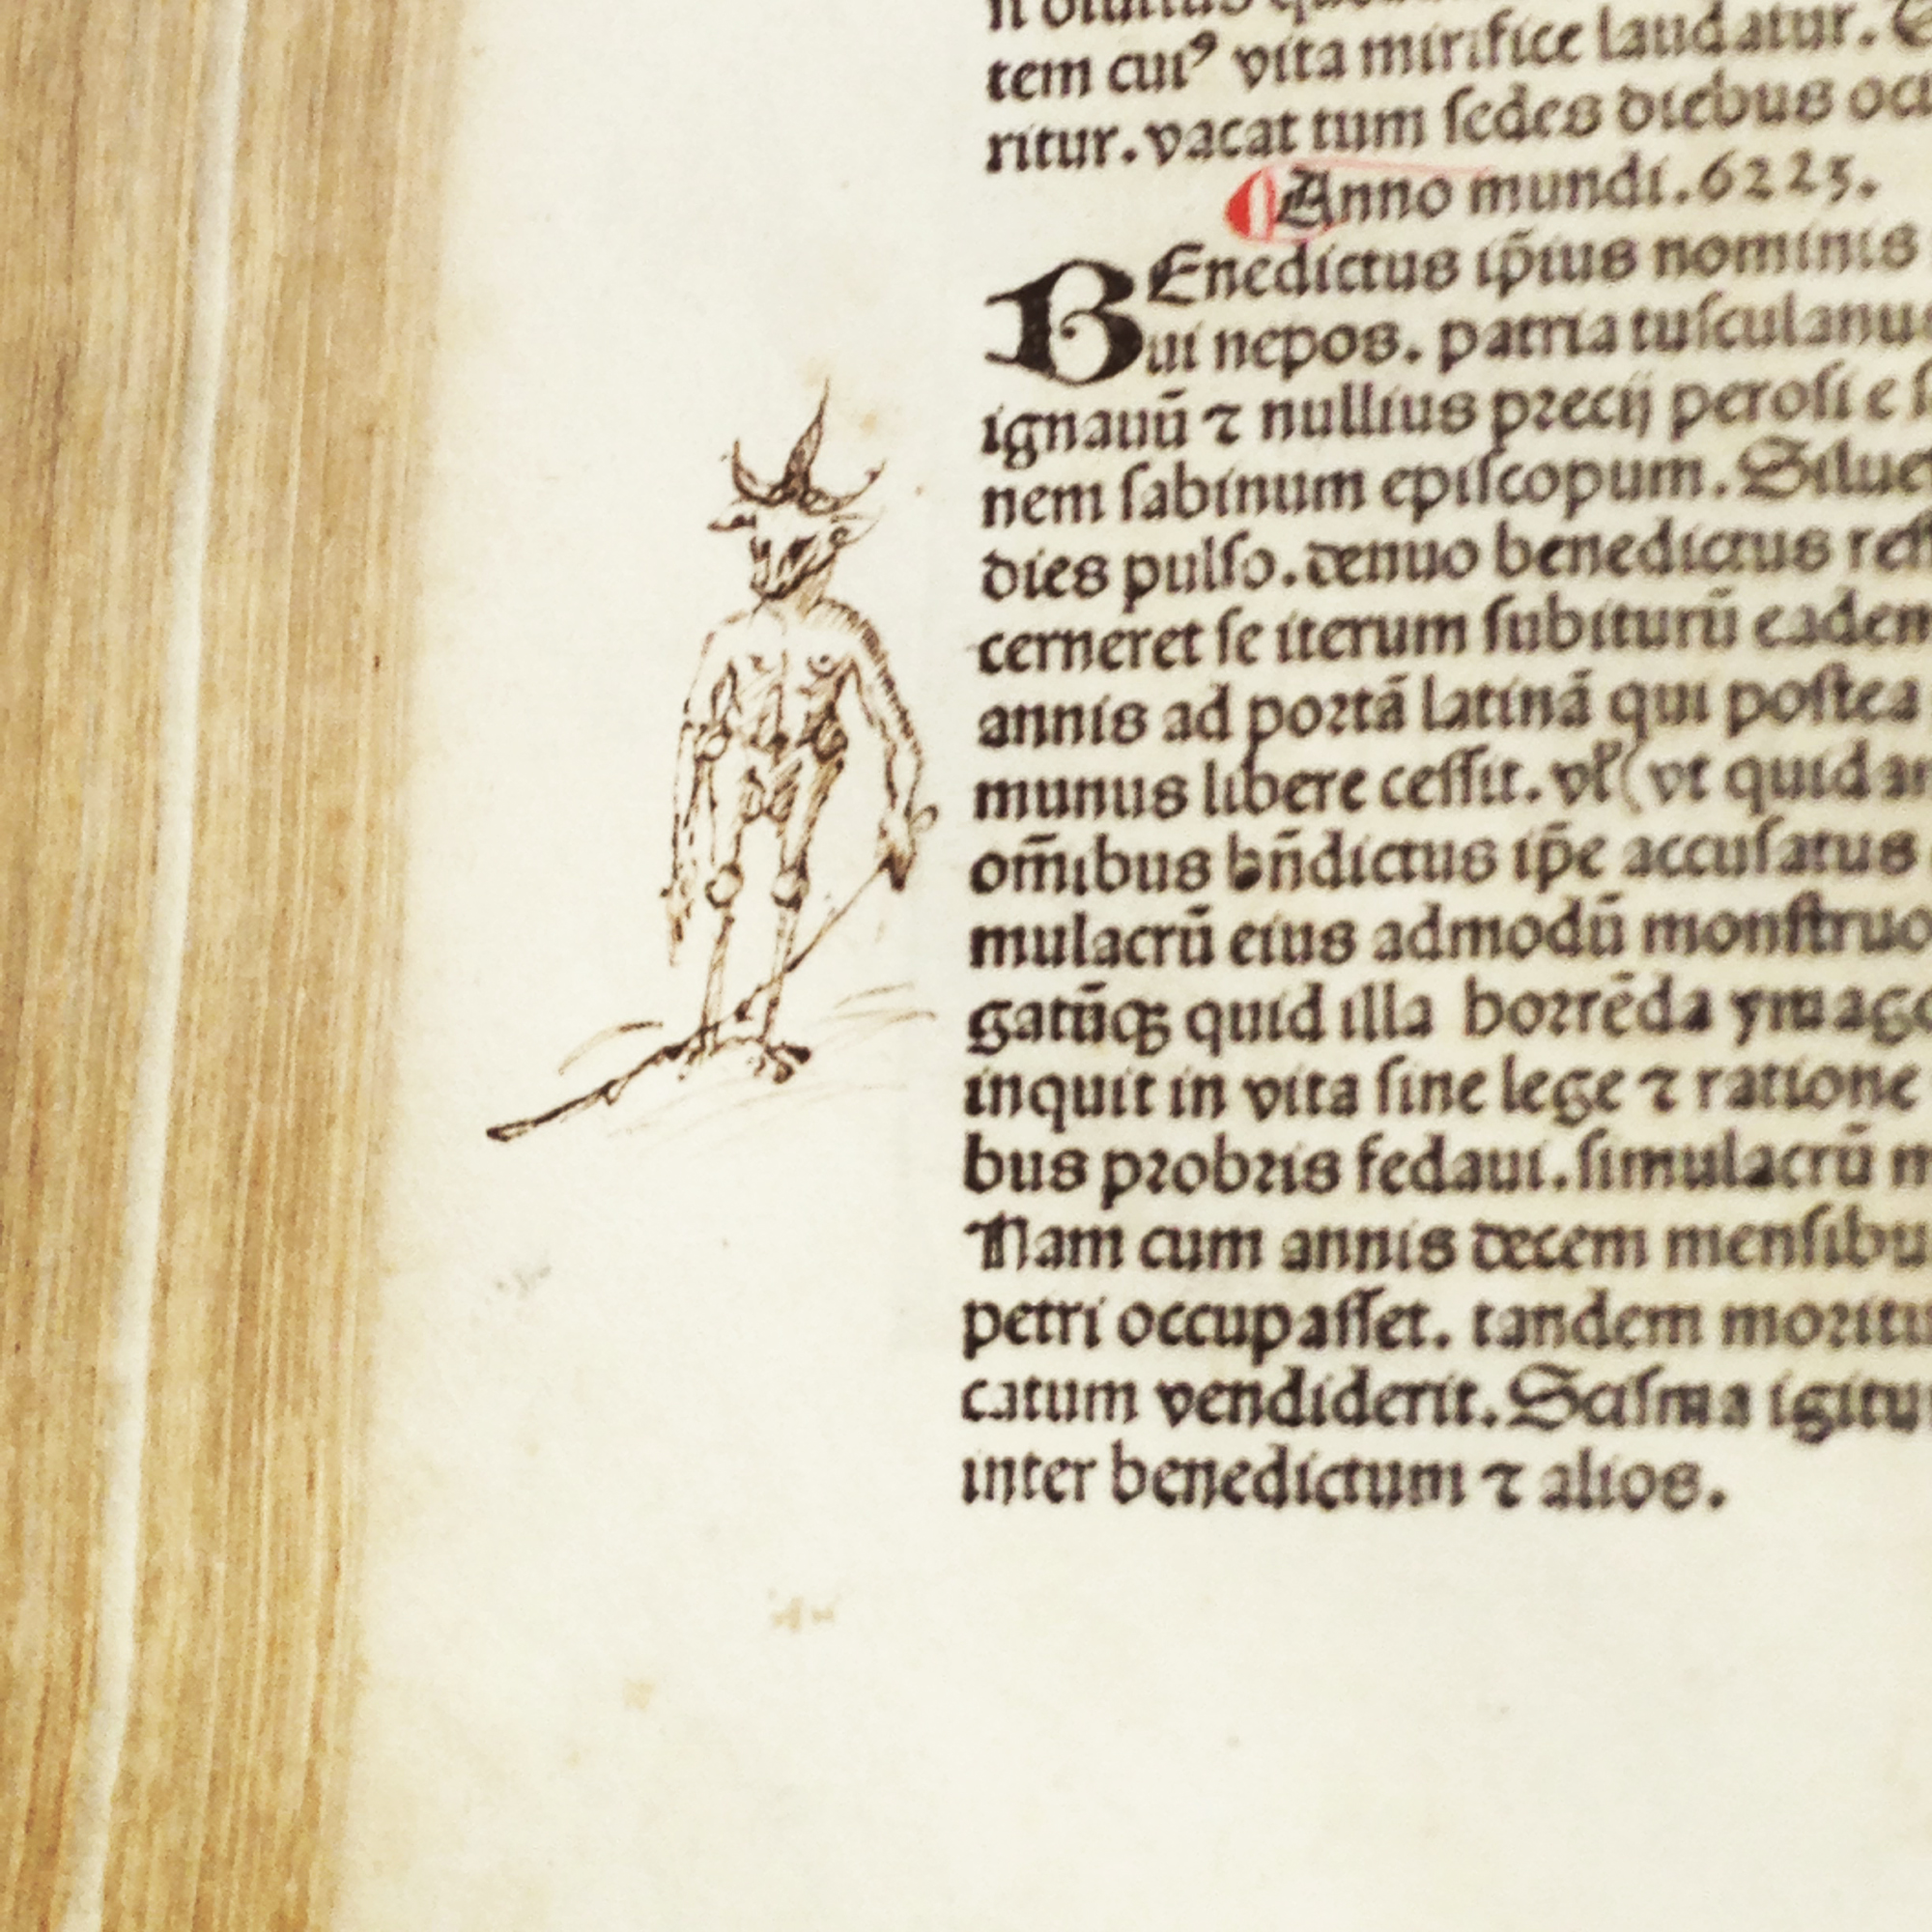 tem cuiꝰ vita mirifice laudatur.
ritur. vacat tum ſedes diebus
Anno mundi. 6225.
BEnedictus ip̄ius nominis
ui nepos. patria tuſculanu
ignauū ⁊ nullius precij peroſi e
nem ſabinum epiſcopum. Silue
dies pulſo. denuo benedictus reſt
cerneret ſe iterum ſubiturū eadem
annis ad portā latinā qui poſtea
munus libere ceſſit. vl̄ (vt quidam
om̄ibus bn̄dictus ip̄e accuſatus
mulacrū eius admodū monſtruo
gatūqꝫ quid illa horrēda ymago
inquit in vita ſine lege ⁊ ratione
bus probris fedaui. ſimulacrū m
Nam cum annis decem menſibu
petri occupaſſet. tandem moritu
catum vendiderit. Sciſma igitu
inter benedictum ⁊ alios.